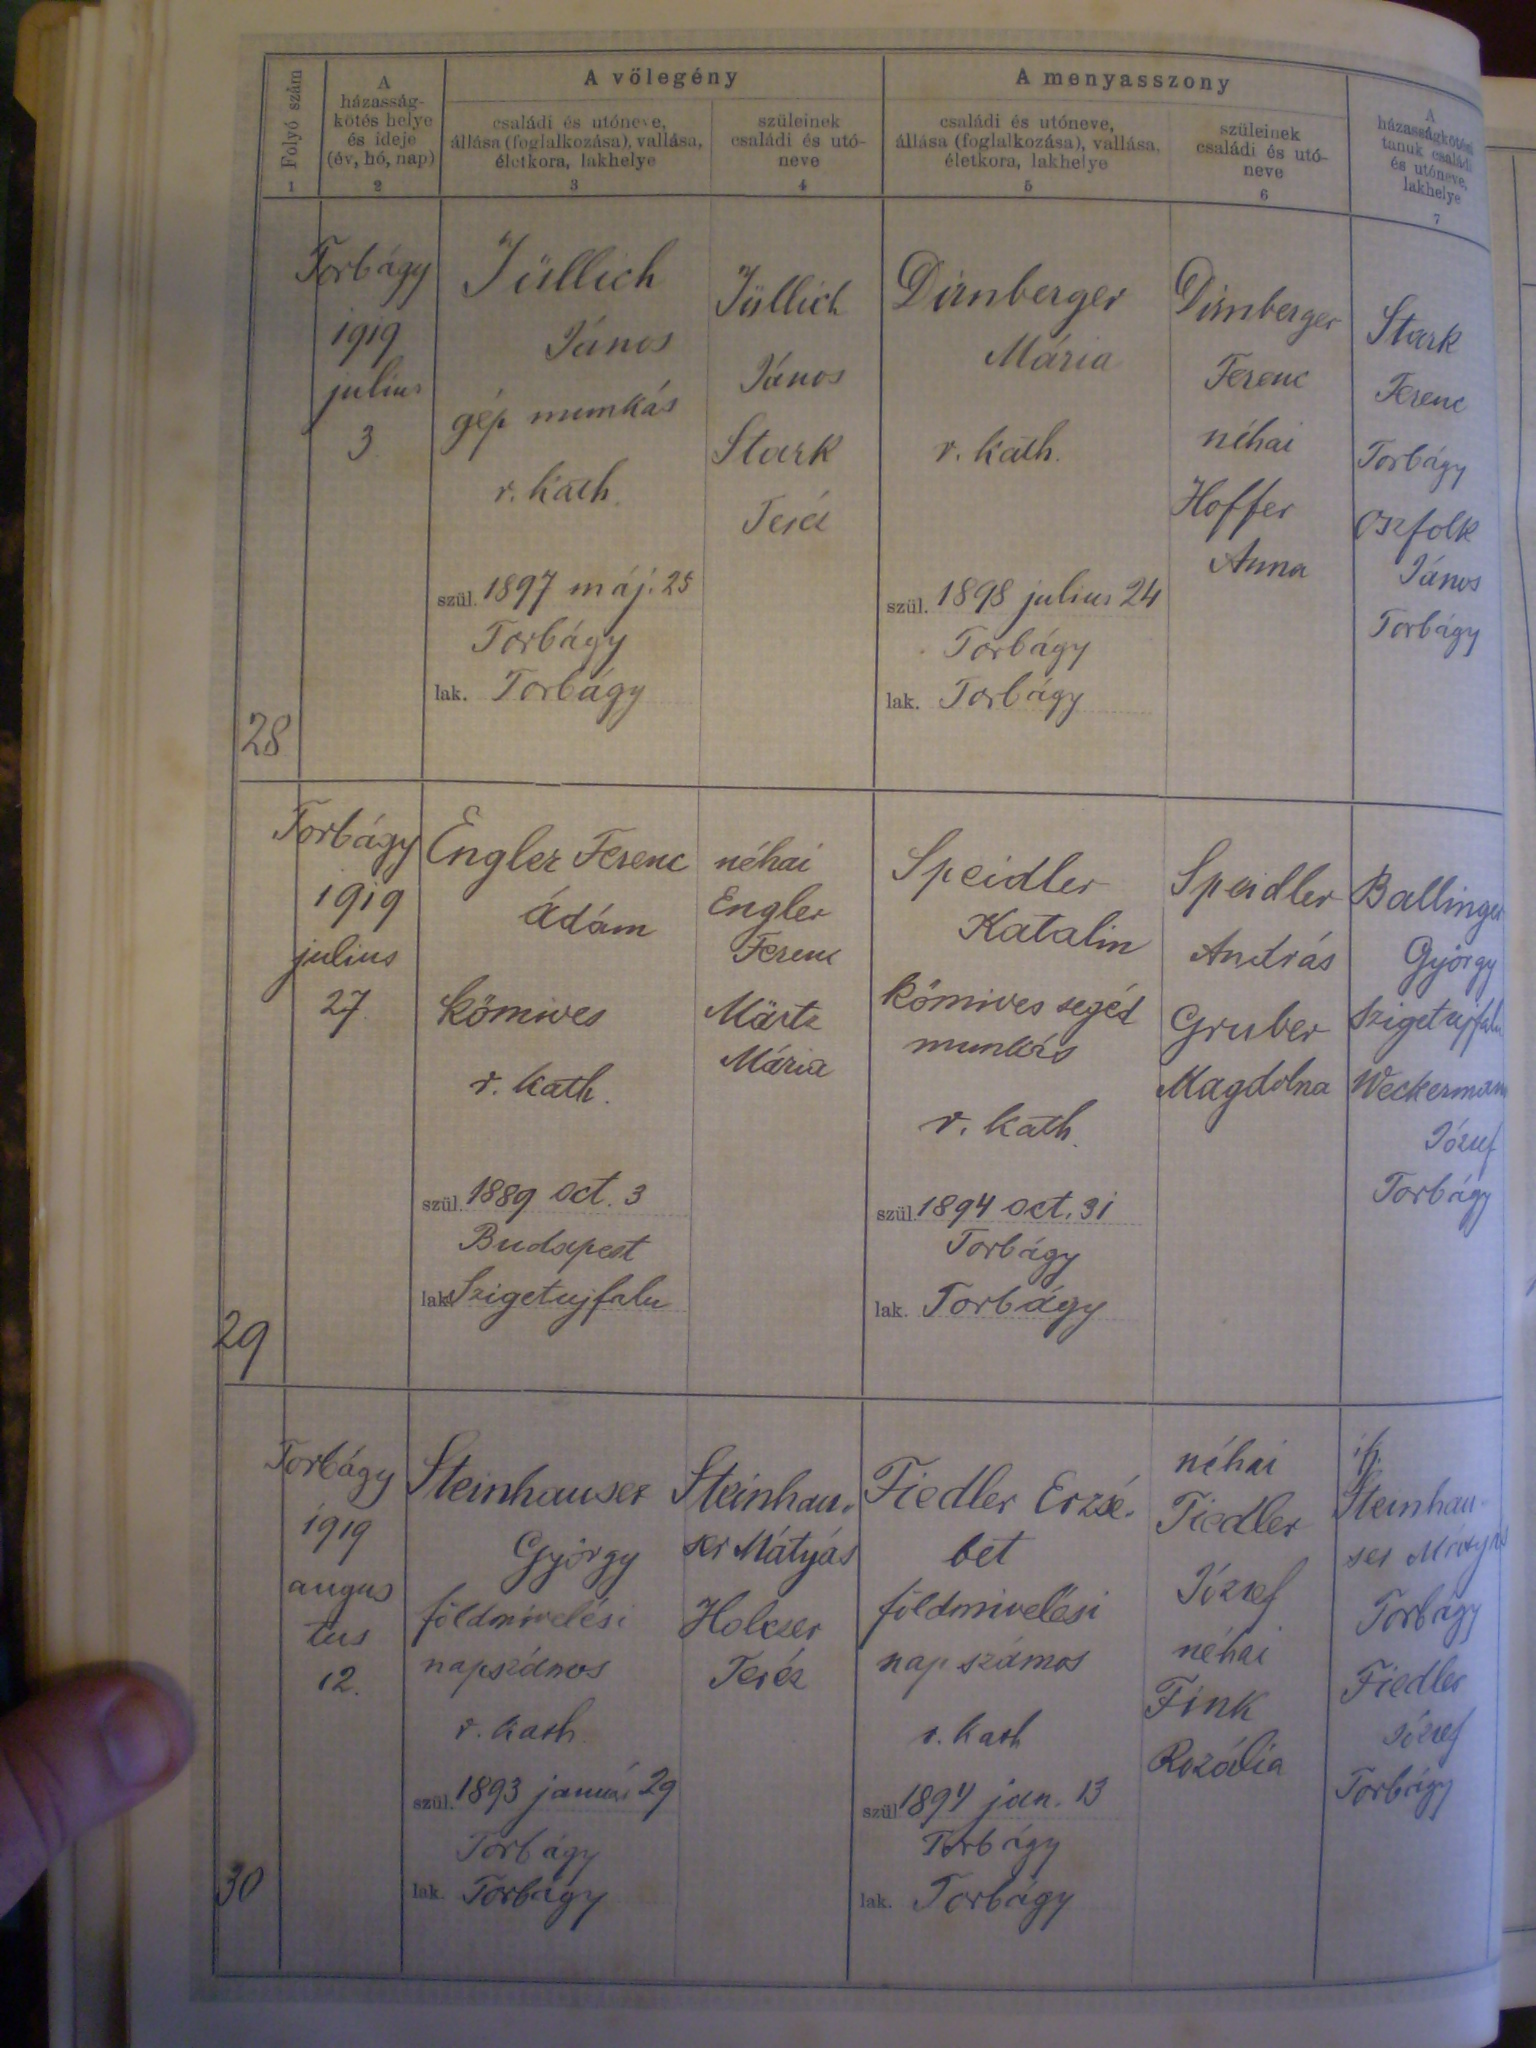 Folyó szám
1
A
házasság-
kötés helye
és ideje
(év, hó, nap)
2
A vőlegény
családi és utóneve,
állása (foglalkozása), vallása,
életkora, lakhelye
3
szüleinek
családi és utó-
neve
4
A menyasszony
családi és utóneve,
állása (foglalkozása), vallása,
életkora, lakhelye
5
szüleinek
családi és utó-
neve
6
A
házasságkötési
tanuk családi
és utóneve,
lakhelye
7
28
Torbágy
1919
julius
3.
Jüllich
János
gép munkás
r. kath.
szül. 1897 máj. 25
Torbágy
lak. Torbágy
Jüllich
János
Stark
Teréz
Dirnberger
Mária
r. kath.
szül. 1898 julius 24
Torbágy
lak. Torbágy
Dirnberger
Ferenc
néhai
Hoffer
Anna
Stark
Ferenc
Torbágy
Oszfolk
János
Torbágy
29
Torbágy
1919
julius
27.
Engler Ferenc
Ádám
kömives
r. kath.
szül. 1889 oct. 3
Budapest
lak. Szigetujfalu
néhai
Engler
Ferenc
Märtz
Mária
Speidler
Katalin
kömives segéd
munkás
r. kath.
szül. 1894 oct. 31
Torbágy
lak. Torbágy
Speidler
András
Gruber
Magdolna
Ballinger
György
Szigetujfalu
Weckermann
József
Torbágy
30
Torbágy
1919
augus
tus
12.
Steinhauser
György
földmivelési
napszámos
r. kath.
szül. 1893 január 29
Torbágy
lak. Torbágy
Steinhau-
ser Mátyás
Holczer
Teréz
Fiedler Erzsé-
bet
földmivelési
nap számos
r. kath
szül. 1894 jan. 13
Torbágy
lak. Torbágy
néhai
Fiedler
József
néhai
Fink
Rozália
ifj.
Steinhau-
ser Mátyás
Torbágy
Fiedler
József
Torbágy